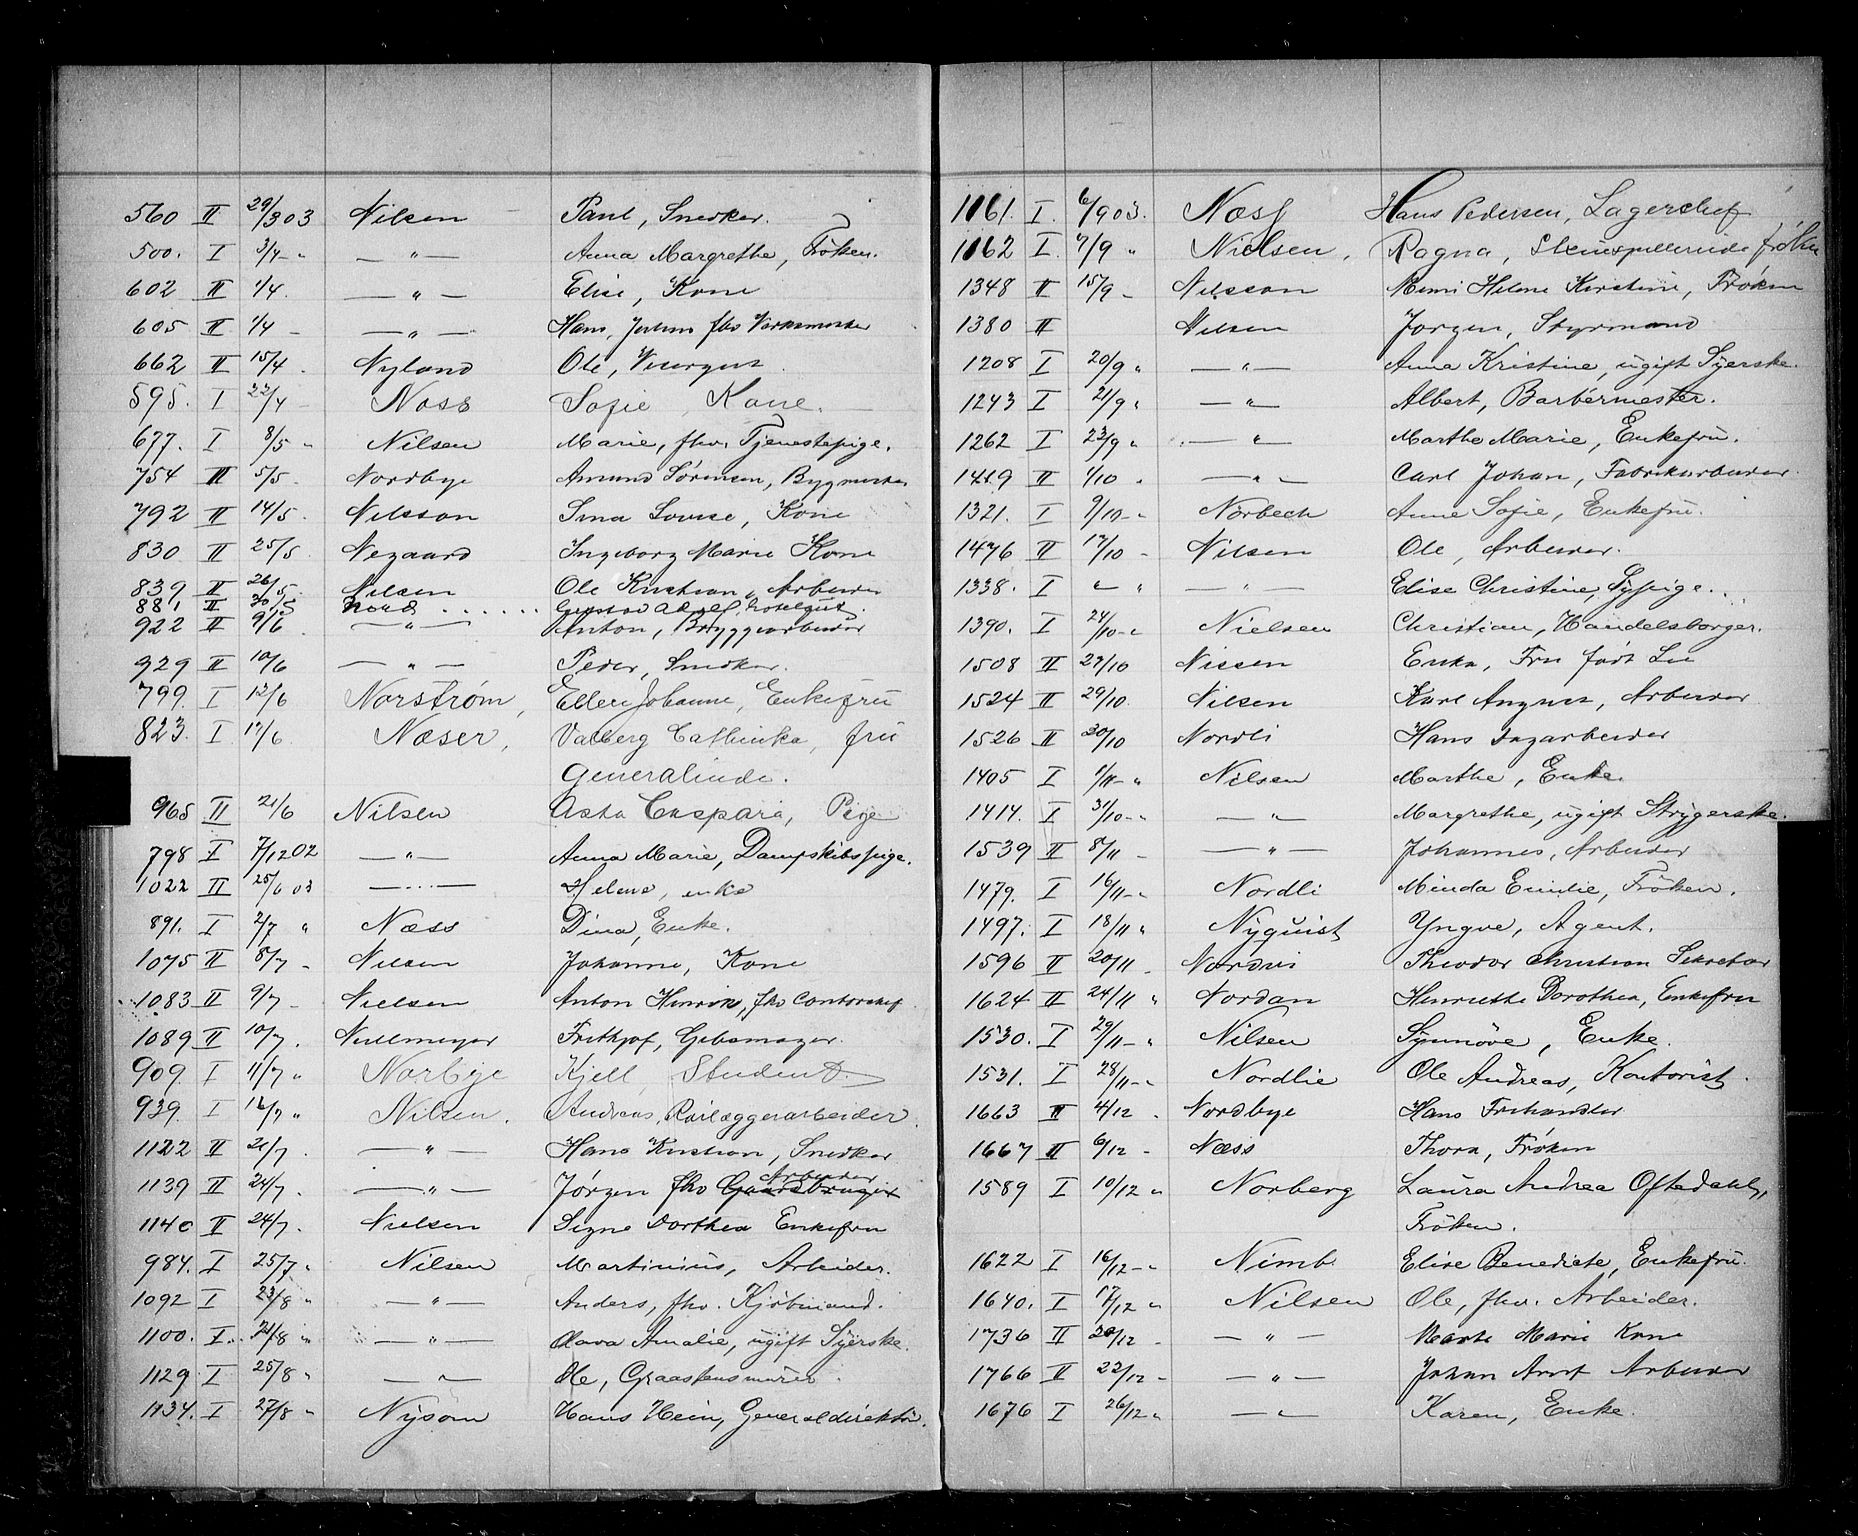 560 II 29/3 03 Nilsen Paul, Snedker.
500. I 3/4 - „ — „ — Anna Margrethe, Frøken.
602 II 1/4. — „ — Elise, Kone
605 II 1/4 - — „ — Hans, fhv Værksmester
662 II 15/4 . Nyland Ole,
595. I 22/4 - Næss Sofie, Kone.
677. I 8/5 „ Nilsen Marie, fhv. Tjenestepige.
754 II 5/5. Nordbye Amund Sørensen, Bygmester
792 II 14/5. Nilsson Lina Lovise, Kone
830 II 25/5. Negaard Ingeborg Marie Kone
839 II 26/5. Nilsen Ole Kristian, Arbeider
881 II 30/5 Nord . . . . . . Gustav Adolf,
922 II 9/6 — „ — Anton, Bryggearbeider
929 II 10/6 — „ — Peder, Snedker.
799. I 12/6 Norstrøm, Ellen Johanne, Enkefru
823. I 17/6 Næser, Valberg Cathinka, fru
Generalinde.
965 II 21/6 Nilsen Asta Caspara, Pige
798 I 7/12 02 — „ — Anna Marie, Dampskibspige.
1022 II 25/6 03 — „ — Helene, enke
891. I 2/7 „ Næss Dina, Enke.
1075 II 8/7 - Nilsen Johanne, Kone
1083 II 9/7 - Nielsen Anton Henrik, fhv Contorchef
1089 II 10/7. Neumeyer Frithjof, Gibsmager.
909. I 11/7 „ Norbye Kjell, Student.
939. I 16/7 „ Nilsen. Andreas, Rørlæggerarbeider.
1122 II 21/7 . — „ — Hans Kristian, Snedker
1139 II 24/7. — „ — Jørgen fhv Gaardbruger Arbeider
1140 II 24/7. Nielsen Signe Dorthea Enkefru
984. I 25/7 „ Nilsen Martinius, Arbeider.
1092 I 23/8 „ — „ — Anders, fhv. Kjøbmand.
1100. I. 21/8 „ — „ — Olava Amalie, ugift Syerske.
1129 I 25/8 „ — „ — Ole, Graastensmurer.
1134. I 27/8 „ Nysom Hans Hein, Generaldirektør.
1161. I. 6/9 03. Næss Hans Pedersen, Lagerchef
1162 I. 7/9 „ Nielsen, Ragna, Skuespillerinde frøken
1348 II 15/9 - Nilsson Mimi Helene Kirstine, Frøken
1380 II Nilsen Jørgen, Styrmand
1208 I 20/9 „ — „ — Anna Kristine, ugift Syerske.
1243 I 21/9 „ — „ — Albert, Barbermester.
1262 I 23/9 „ — „ — Marthe Marie, Enkefru.
1419 II 1/10 . — „ — Carl Johan, Fabrikarbeider.
1321. I 9/10 - „ Norbech Anne Sofie, Enkefru.
1476 II 17/10 - Nilsen Ole, Arbeider.
1338. I „ - „ — „ — Elise Christine, Sypige.
1390. I 24/10 - „ Nielsen Christian, Handelsborger.
1508 II 27/10 Nissen Enka, Fru født
1524 II 29/10. Nilsen Karl August, Arbeider
1526 II 30/10 Nordli Hans Dagarbeider
1405 I 1/11 - „ Nilsen Marthe, Enke.
1414. I 31/10 - „ — „ — Margrethe, ugift Strygerske.
1539 II 8/11 - — „ — Johannes, Arbeider
1479. I 16/11 - „ Nordli Minda Emilie, Frøken.
1497. I 18/11 „ Nyquist Yngve, Agent.
1596 II 20/11 - Nordvi Theodor Christian Sekretær
1624 II 24/11 „ Nordan Henriette Dorothea, Enkefru
1530. I 29/11 - „ Nilsen Synnøve, Enke.
1531. I 28/11 - „ Nordlie Ole Andreas, Kontorist.
1663 II 4/12 . Nordbye Hans Frihandler
1667 II 6/12 - Næss Thora, Frøken
1589 I 10/12 „ Norberg Laura Andrea Oftedahl,
Frøken.
1622 I 16/12 - „ Nimb Elise Benedicte, Enkefru.
1640. I 17/12 „ Nilsen Ole, fhv. Arbeider.
1736 II 20/12 - — „ — Marte Marie Kone
1766 II 22/12 - — „ — Johan Arnt Arbeider
1676 I 26/12 „ — „ — Karen, Enke.